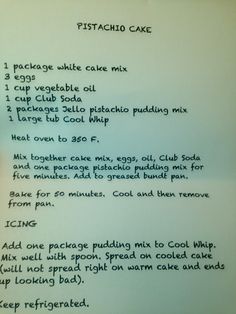 PISTACHIO CAKE
1 package white cake mix
3 eggs
1 cup vegetable oil
1 cup Club Soda
2 packages Jello pistachio pudding mix
1 large tub Cool Whip
Heat oven to 350 F.
Mix together cake mix, eggs, oil, Club Soda
and one package pistachio pudding mix for
five minutes. Add to greased bundt pan.
Bake for 50 minutes. Cool and then remove
from pan.
ICING
Add one package pudding mix to Cool Whip.
Mix well with spoon. Spread on cooled cake
(will not spread right on warm cake and ends
up looking bad).
Keep refrigerated.